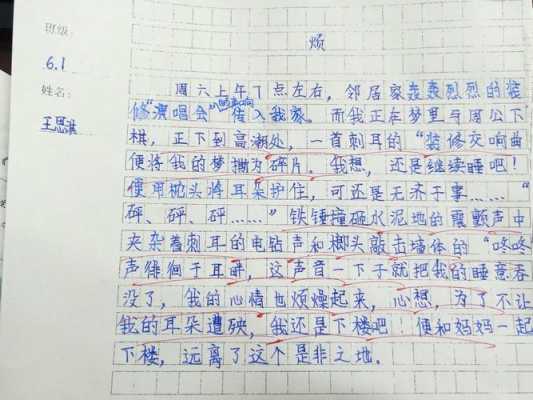 班级:
6.1
姓名:
烦
周六上午7点左右，邻居家轰轰烈烈的装
修"演唱会"传入我家。而我正在梦里与周公下
棋，正下到高潮处，一首刺耳的"装修交响曲
便将我的梦撕为碎片。我想，还是继续睡吧！
便用枕头将耳朵护住，可还是无济于事……"
砰、砰、砰……"铁锤撞砸水泥地的震颤声中
夹杂着刺耳的电钻声和榔头敲击墙体的"咚咚"
声徘徊于耳畔，这声音一下子就把我的睡意吞
没了，我的心情也烦燥起来，心想，为了不让
我的耳朵遭殃，我还是下楼吧！便和妈妈一起
下楼，远离了这个是非之地。